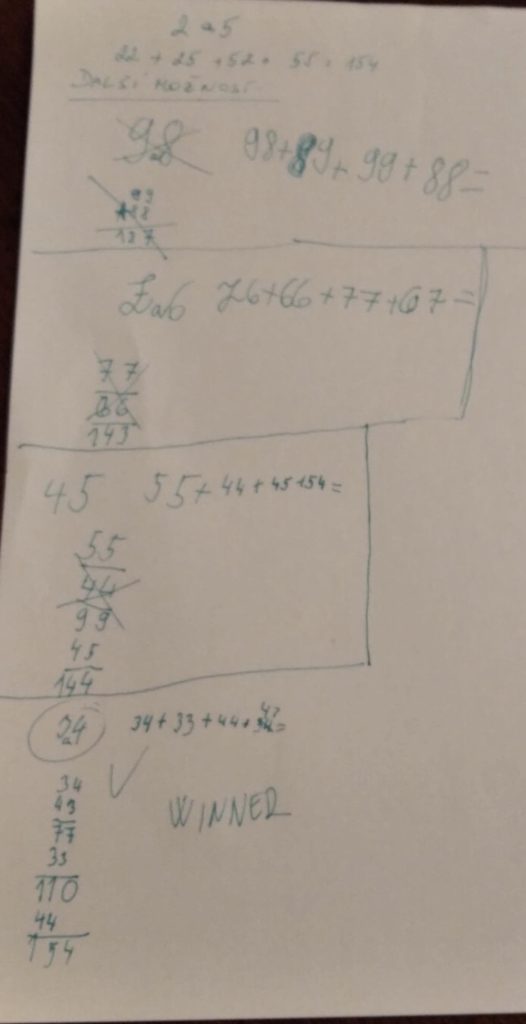 2 a 5
22 + 25 + 52 + 55 = 154
DALŠÍ MOŽNOSTI
9a8 98+89+99+88=
99
188
187
7a6 76+66+77+67=
77
66
143
45 55+44+45+54=
55
44
99
45
144
3a4 34+33+44+43=
34
43
77
33
110
44
154
WINNER